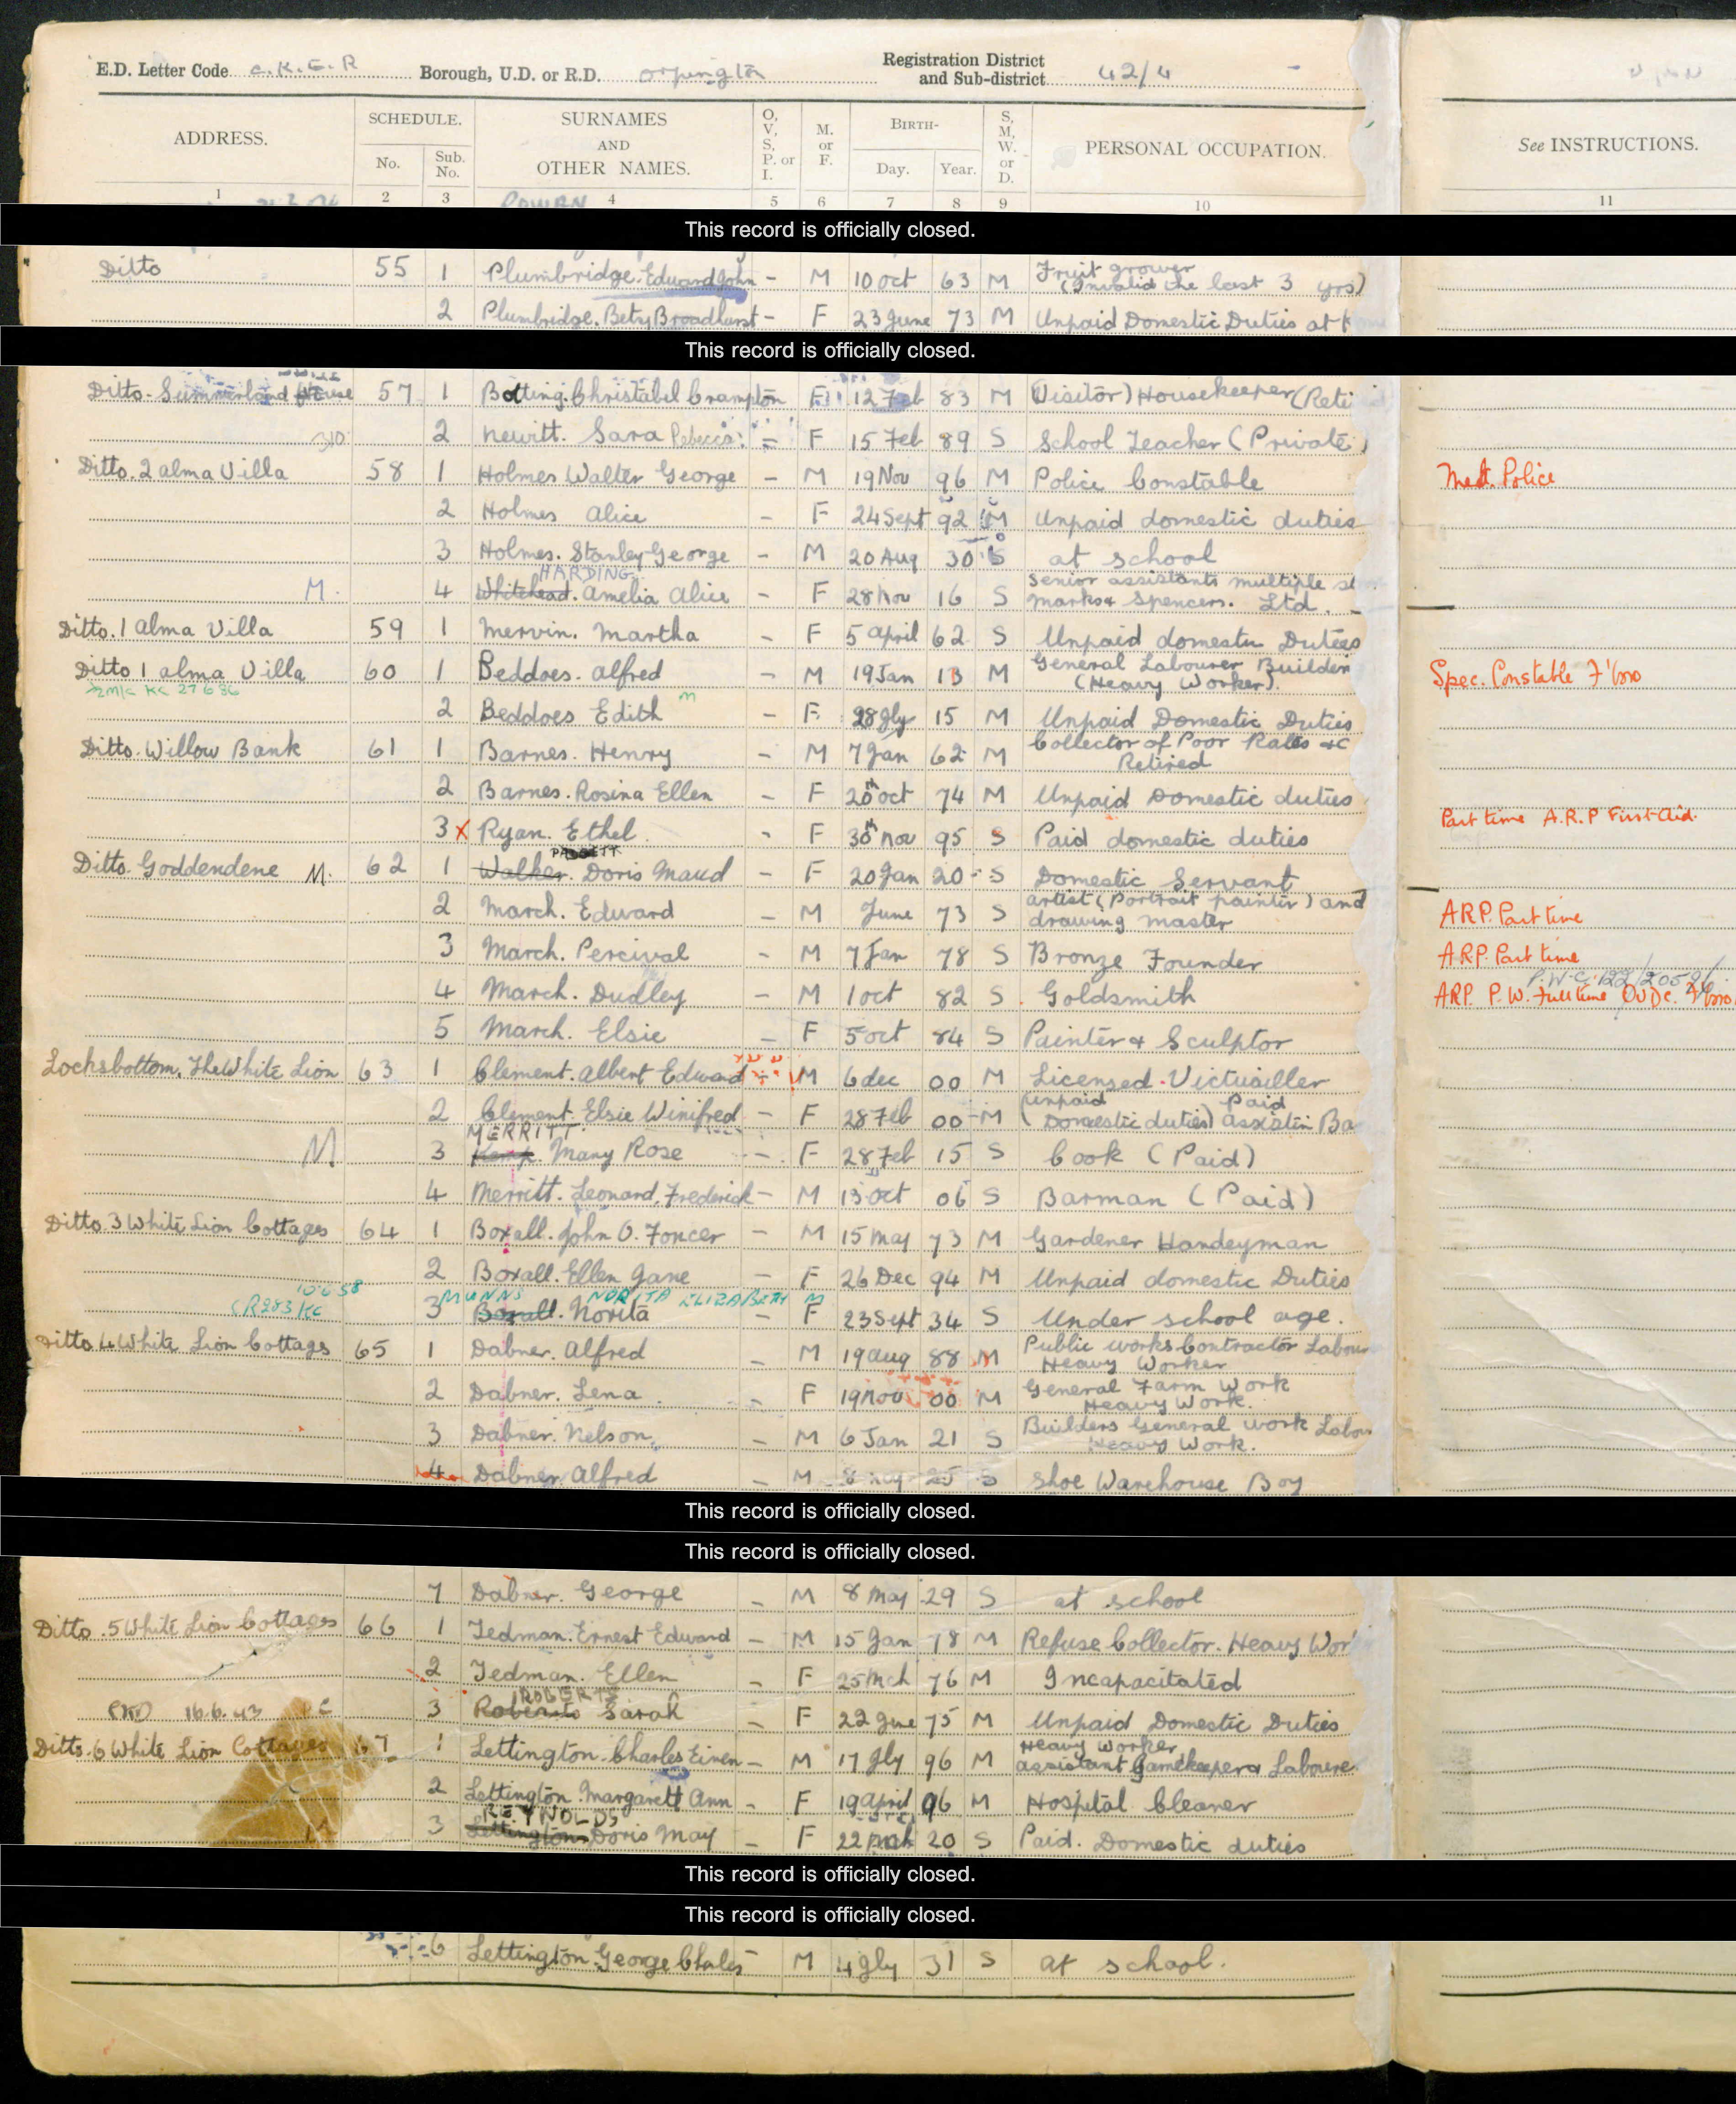 E.D. Letter Code C.K.E.R Borough, U.D. or R.D. Orpington Registration District and Sub-district 42/4
ADDRESS. SCHEDULE. No. Sub. No. SURNAMES AND OTHER NAMES. O, V, S, P. or I. M. or F. BIRTH- Day. Year. S, M, W. or D. PERSONAL OCCUPATION. See INSTRUCTIONS.
1 2 3 4 5 6 7 8 9 10 11
This record is officially closed.
Ditto 55 1 Plumbridge. Edward John - M 10 Oct 63 M Fruit grower (Invalid the last 3 yrs)
2 Plumbridge. Betsy Broadhurst - F 23 June 73 M Unpaid Domestic Duties at
This record is officially closed.
Ditto. Summerland House 57 1 Botting. Christabel Crampton F 12 Feb 83 M (Visitor) Housekeeper (Reti
2 Newitt. Sara Rebecca - F 15 Feb 89 S School Teacher (Private)
Ditto. 2 Alma Villa 58 1 Holmes Walter George - M 19 Nov 96 M Police Constable Met. Police
2 Holmes Alice - F 24 Sept 92 M Unpaid domestic duties
3 Holmes. Stanley George - M 20 Aug 30 S at school
HARDING
M. 4 Whitehead. Amelia Alice - F 28 Nov 16 S Senior assistants multiple Marks & Spencers. Ltd.
Ditto. 1 Alma Villa 59 1 Mervin. Martha - F 5 April 62 S Unpaid domestic Duties
Ditto 1 Alma Villa 60 1 Beddoes. Alfred - M 19 Jan 13 M General Labourer Builder (Heavy Worker). Spec. Constable
2 Beddoes Edith M - F. 28 Jly 15 M Unpaid Domestic Duties
Ditto. Willow Bank 61 1 Barnes. Henry - M 7 Jan 62 M Collector of Poor Rates &c Retired
2 Barnes. Rosina Ellen - F 20th Oct 74 M Unpaid Domestic duties
3 X Ryan. Ethel - F 30th Nov 95 S Paid domestic duties Part time A.R.P First-Aid.
Ditto. Goddendene M. 62 1 Walker. Doris Maud - F 20 Jan 20 S Domestic Servant
2 March. Edward - M June 73 S Artist (Portrait painter) and drawing master A.R.P. Part time
3 March. Percival - M 7 Jan 78 S Bronze Founder A.R.P. Part time
4 March. Dudley - M 1 Oct 82 S Goldsmith A.R.P. P.W. Full time
5 March. Elsie - F 5 Oct 84 S Painter & Sculptor
Locksbottom. The White Lion 63 1 Clement. Albert Edward - M 6 Dec 00 M Licensed Victuailler
2 Clement. Elsie Winifred - F 28 Feb 00 M (unpaid Domestic duties) Paid Assistin Ba
MERRITT
M 3 Kemp. Mary Rose - F 28 Feb 15 S Cook (Paid)
4 Merritt. Leonard. Frederick - M 13 Oct 06 S Barman (Paid)
Ditto. 3 White Lion Cottages 64 1 Boxall. John O. Foncer - M 15 May 73 M Gardener Handeyman
2 Boxall. Ellen Jane - F 26 Dec 94 M Unpaid domestic Duties
10.6.58 MUNNS NORITA ELIZABETH M
CR283 KC 3 Boxall. Norita - F 23 Sept 34 S Under school age.
Ditto 4 White Lion Cottages 65 1 Dabner. Alfred - M 19 Aug 88 M Public works Contractor Labour Heavy Worker
2 Dabner. Lena - F 19 Nov 00 M General Farm Work Heavy Work.
3 Dabner. Nelson - M 6 Jan 21 S Builders General work Labou Heavy Work.
4 Dabner. Alfred - M 8 25 S Shoe Warehouse Boy
This record is officially closed.
This record is officially closed.
7 Dabner. George - M 8 May 29 S at school
Ditto. 5 White Lion Cottages 66 1 Tedman. Ernest Edward - M 15 Jan 78 M Refuse Collector. Heavy Wor
2 Tedman. Ellen F 25 Mch 76 M Incapacitated
ROBERTS
16.6.43 3 Roberts Sarah - F 22 June 75 M Unpaid Domestic Duties
Ditto. 6 White Lion Cottages 67 1 Lettington. Charles - M 17 Jly 96 M Heavy Worker Assistant Gamekeeper & Laboure
2 Lettington. Margarett Ann - F 19 April 96 M Hospital Cleaner
REYNOLDS
3 Lettington Doris May - F 22 Mch 20 S Paid. Domestic duties
This record is officially closed.
This record is officially closed.
6 Lettington George Charles - M 4 Jly 31 S at school.